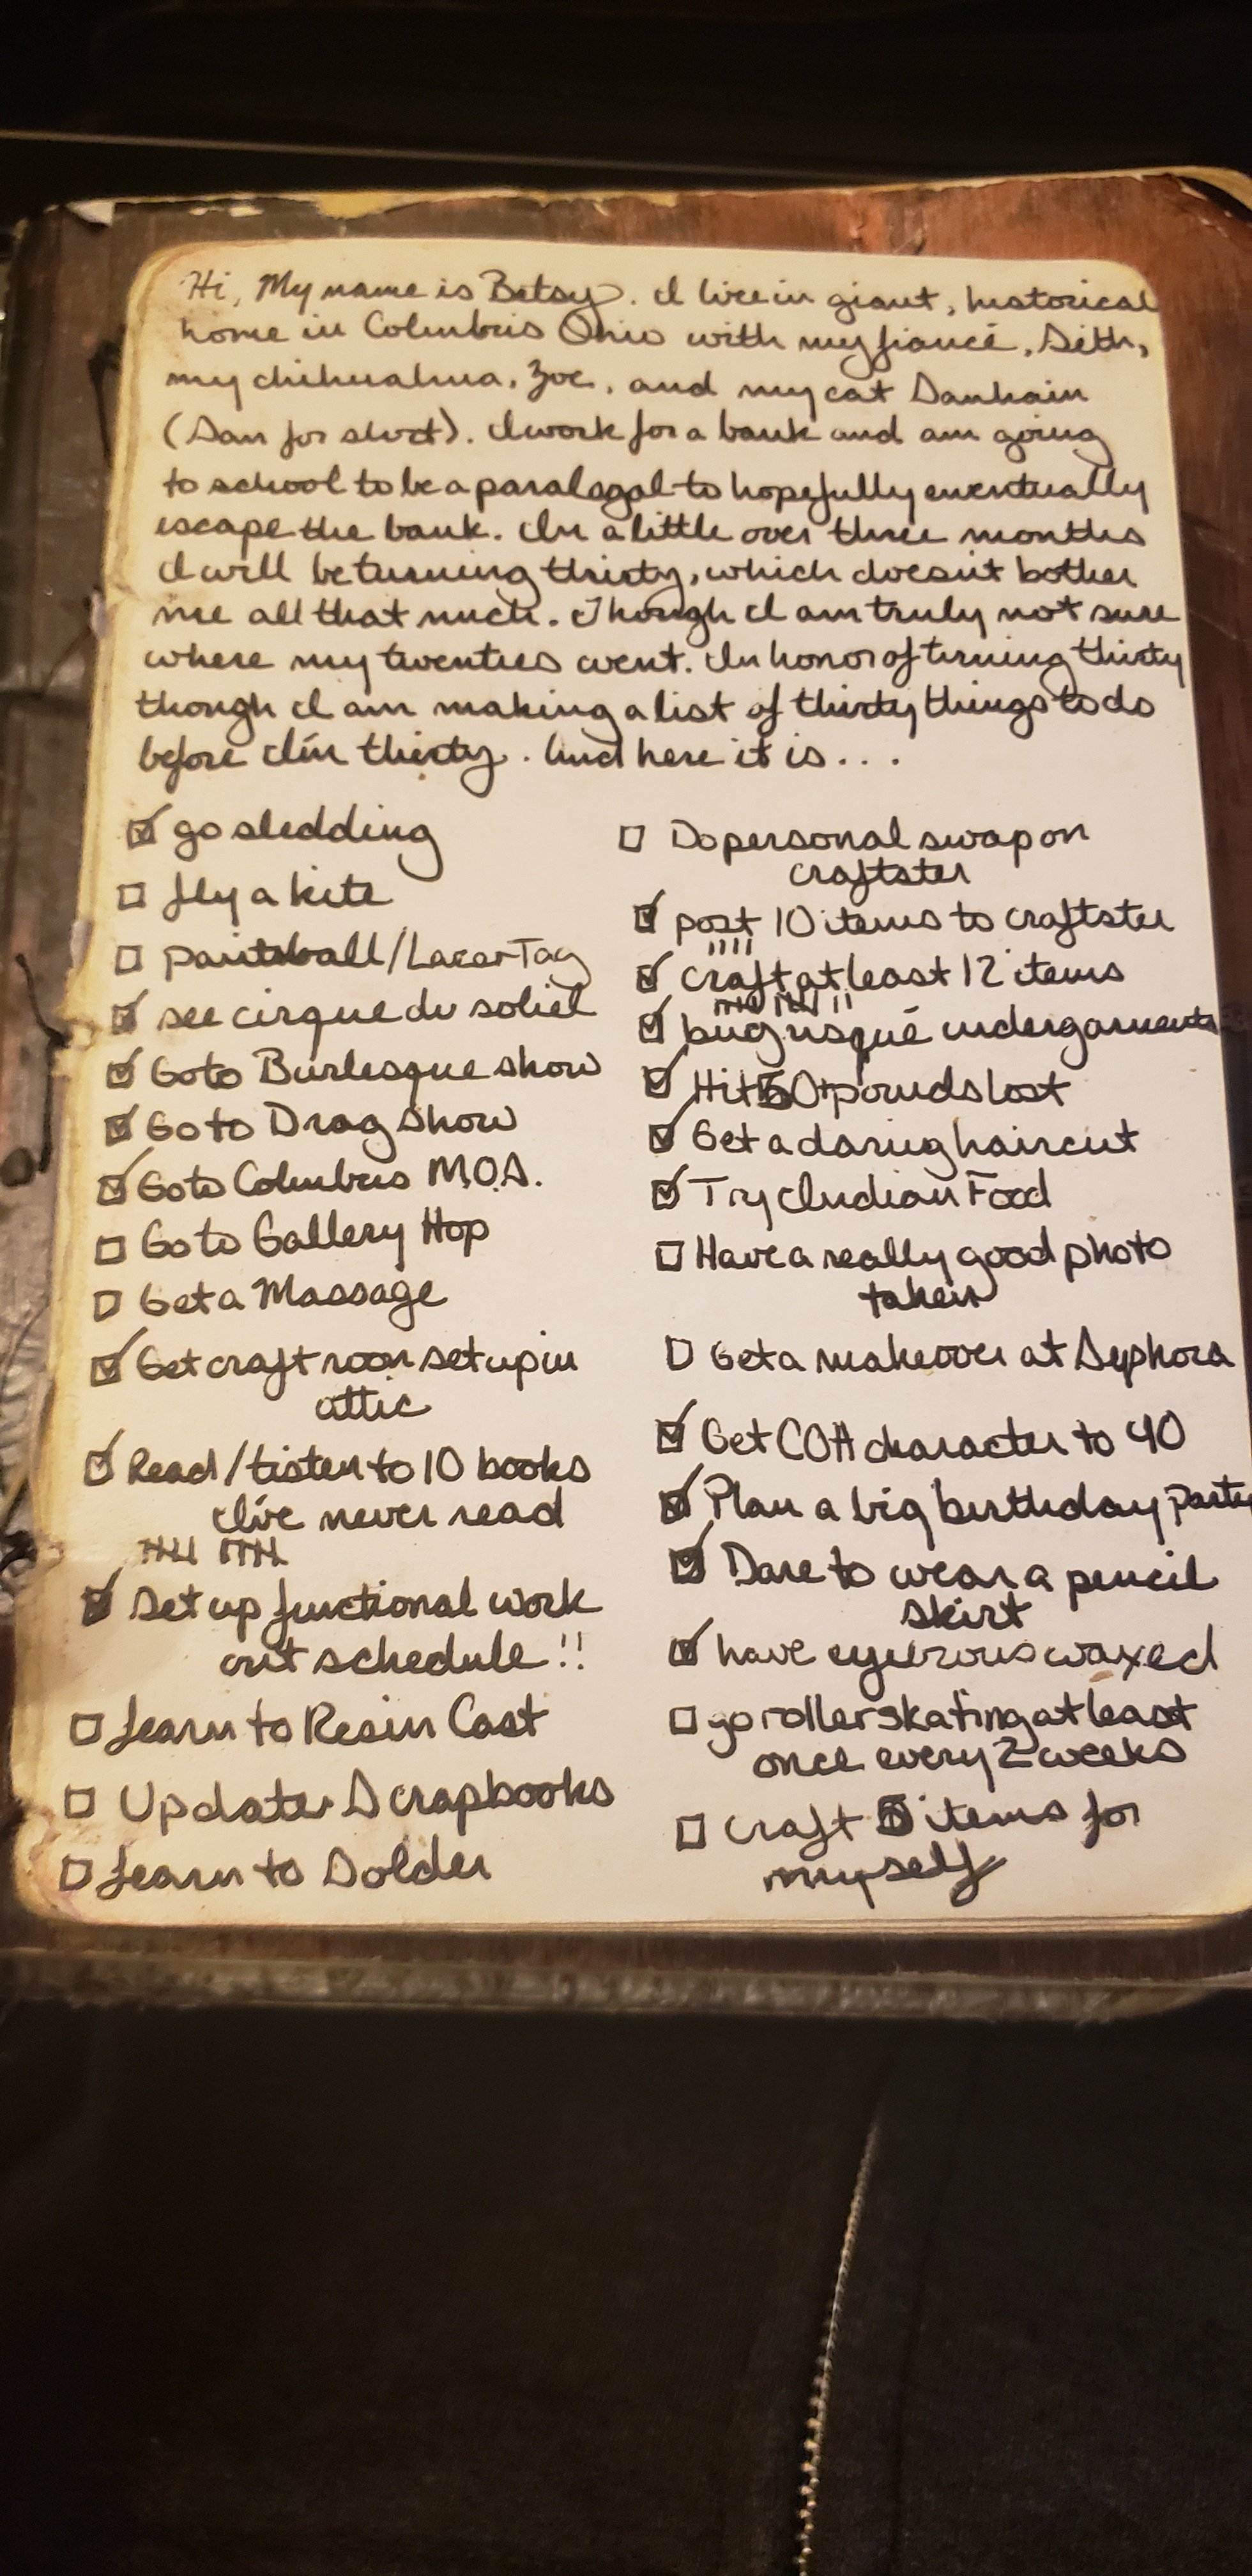 Hi, My name is Betsy. I live in giant, historical
home in Columbus Ohio with my fiancé, Seth,
my chihuahua, Zoe, and my cat Danhain
(Dan for short). I work for a bank and am going
to school to be a paralegal to hopefully eventually
escape the bank. In a little over three months
I will be turning thirty, which doesn't bother
me all that much. Though I am truly not sure
where my twenties went. In honor of turning thirty
though I am making a list of thirty things to do
before I'm thirty. And here it is...
☑ go sledding
☐ fly a kite
☐ paintball/Lazer Tag
☑ see cirque du soliel
☑ Go to Burlesque show
☑ Go to Drag Show
☑ Go to Columbus M.O.A.
☐ Go to Gallery Hop
☐ Get a Massage
☑ Get craft room set up in
attic
☑ Read/listen to 10 books
I've never read
☑ Set up functional work
out schedule!!
☐ Learn to Resin Cast
☐ Update Scrapbooks
☐ Learn to Solder
☐ Do personal swap on
craftster
☑ post 10 items to craftster
☑ craft at least 12 items
☑ buy risqué undergarments
☑ Hit 50+ pounds lost
☑ Get a daring haircut
☑ Try Indian Food
☐ Have a really good photo
taken
☐ Get a makeover at Sephora
☑ Get COH character to 40
☑ Plan a big birthday party
☑ Dare to wear a pencil
skirt
☑ have eyebrows waxed
☐ go rollerskating at least
once every 2 weeks
☐ craft 5 items for
myself